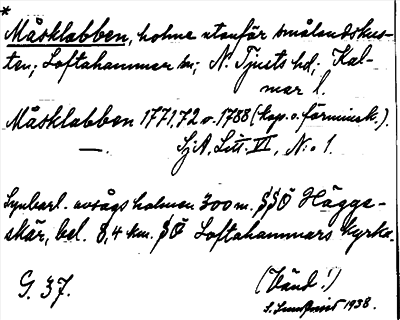 *
Måsklabben, holme utanför smålandskus-
ten; Loftahammar sn; N. Tjusts hd; Kal-
mar l.
Måsklabben 1771,72 o. 1788 (kop. o. förminsk.).
— SjA. Litt. VI, N:o 1.
Synbarl. avsågs holmen 300 m. SSÖ Hägge-
skär, bel. 8,4 km. SÖ Loftahammars kyrka.
G. 37. (Vänd!)
1938.